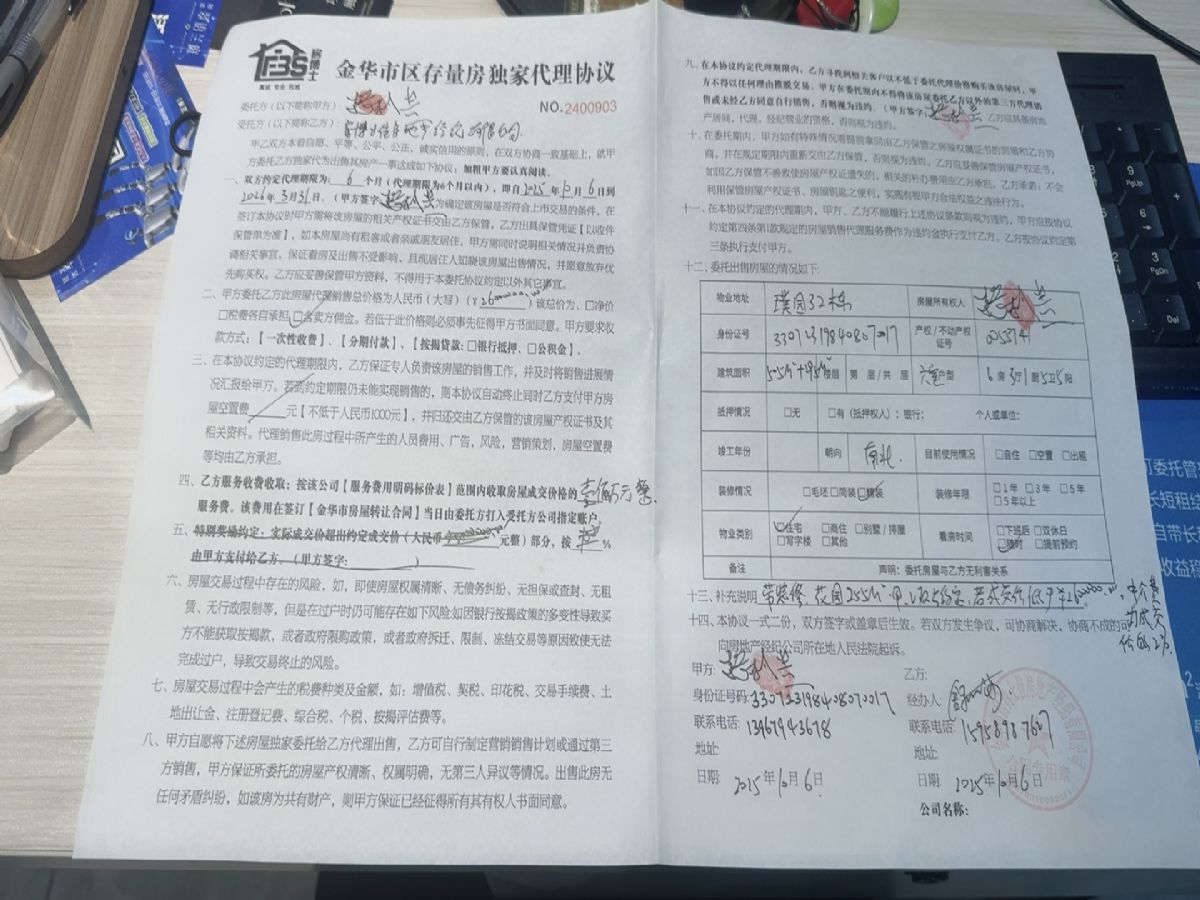 FBS
房博士
真诚 专业 权威
金华市区存量房独家代理协议
NO.2400903
委托方（以下简称甲方）：
受托方（以下简称乙方）：
甲乙双方本着自愿、平等、公平、公正、诚实信用的原则，在双方协商一致基础上，就甲
方委托乙方独家代为出售其房产一事达成如下协议：加粗甲方要认真阅读。
一、双方约定代理期限为：6个月（代理期限为6个月以内），即自2025年10月6日到
2026年3月31日。（甲方签字 为确定该房屋是否符合上市交易的条件，在
签订本协议时甲方需将该房屋的相关产权证书交由乙方保管，乙方出具保管凭证【以收件
保管单为准】，如本房屋尚有租客或者亲戚朋友居住，甲方需同时说明相关情况并负责协
调相关事宜，保证看房及出售不受影响，且现居住人如晓该房屋出售情况，并愿意放弃优
先购买权。乙方应妥善保管甲方资料，不得用于本委托协议约定以外其它事宜。
二、甲方委托乙方此房屋代理销售总价格为人民币（大写）（¥ ）该总价为、□净价
□税费各自承担 □含卖方佣金。若低于此价格则必须事先征得甲方书面同意。甲方要求收
款方式：【一次性收费】、【分期付款】、【按揭贷款：□银行抵押、□公积金】。
三、在本协议约定的代理期限内，乙方保证专人负责该房屋的销售工作，并及时将销售进展情
况汇报给甲方。若到约定期限仍未能实现销售的，则本协议自动终止同时乙方支付甲方房
屋空置费 元【不低于人民币1000元】，并归还交由乙方保管的该房屋产权证书及其
相关资料。代理销售此房过程中所产生的人员费用、广告，风险，营销策划，房屋空置费
等均由乙方承担。
四、乙方服务费收费收取：按该公司【服务费用明码标价表】范围内收取房屋成交价格的 万元整
服务费。该费用在签订【金华市房屋转让合同】当日由委托方打入受托方公司指定账户。
五、特期奖场约定：实际成交价超出约定成交价（人民币 元整）部分，按 %
由甲方支付给乙方。（甲方签字： ）
六、房屋交易过程中存在的风险，如，即使房屋权属清晰、无债务纠纷、无担保或查封、无租
赁、无行政限制等，但是在过户时仍可能存在如下风险:如因银行按揭政策的多变性导致买
方不能获取按揭款，或者政府限购政策，或者政府拆迁、限制、冻结交易等原因致使无法
完成过户，导致交易终止的风险。
七、房屋交易过程中会产生的税费种类及金额，如：增值税、契税、印花税、交易手续费、土
地出让金、注册登记费、综合税、个税、按揭评估费等。
八、甲方自愿将下述房屋独家委托给乙方代理出售，乙方可自行制定营销销售计划或通过第三
方销售，甲方保证所委托的房屋产权清晰、权属明确，无第三人异议等情况。出售此房无
任何矛盾纠纷，如该房为共有财产，则甲方保证已经征得所有其有权人书面同意。
九、在本协议约定代理期限内，乙方寻找到相关客户以不低于委托代理价格购买该房屋时，甲
方不得以任何理由推脱交易。甲方在委托期内不得将该房屋委托乙方以外的第三方代理销
售或未经乙方同意自行销售，否则视为违约。（甲方签字 乙方应具备房地
产居间，代理，经纪营业的资格，否则视为违约。
十、在委托期内，甲方如有特殊情况需提前拿回由乙方保管之房屋权属证书时则需和乙方协
商，并在规定期限内重新交由乙方保管，否则视为违约。乙方应妥善保管房屋产权证书，
如因乙方保管不善致使房屋产权证遗失的，相关的补办费用由乙方承担。乙方承诺：不会
利用保管房屋产权证书、房屋钥匙之便利，实施有损甲方合法权益之违法行为。
十一、在本协议约定的代理期内，甲方、乙方不能履行上述协议条款则视为违约，甲方应按协议
约定第四条第1款规定的房屋销售代理服务费作为违约金执行支付乙方。乙方按协议约定第
三条执行支付甲方。
十二、委托出售房屋的情况如下:
物业地址 璞园32栋 房屋所有权人
身份证号 330723198408070017 产权/不动产权证号
建筑面积 第 层/共 层 户型 6房3厅1厨5卫5阳
抵押情况 □无 □有（抵押权人）：银行： 个人或单位：
竣工年份 朝向 南北 目前使用情况 □自住 □空置 □出租
装修情况 □毛坯 □简装 □精装 装修年限 □1年 □3年 □5年
□5年以上
物业类别 □住宅 □商住 □别墅/排屋
□写字楼 □其他
看房时间 □下班后 □双休日
□随时 □提前预约
备注 声明：委托房屋与乙方无利害关系
十三、补充说明 带装修 花园255M²
十四、本协议一式二份，双方签字或盖章后生效。若双方发生争议，可协商解决，协商不成的可
向房地产经纪公司所在地人民法院起诉。
甲方: 乙方:
身份证号码:330723198408070017 经办人:
联系电话:13967943678 联系电话:15958987627
地址: 地址:
日期: 2025年10月6日 日期: 2025年10月6日
公司名称:
合同专用章
可委托管
长短租结
自带长
收益稳